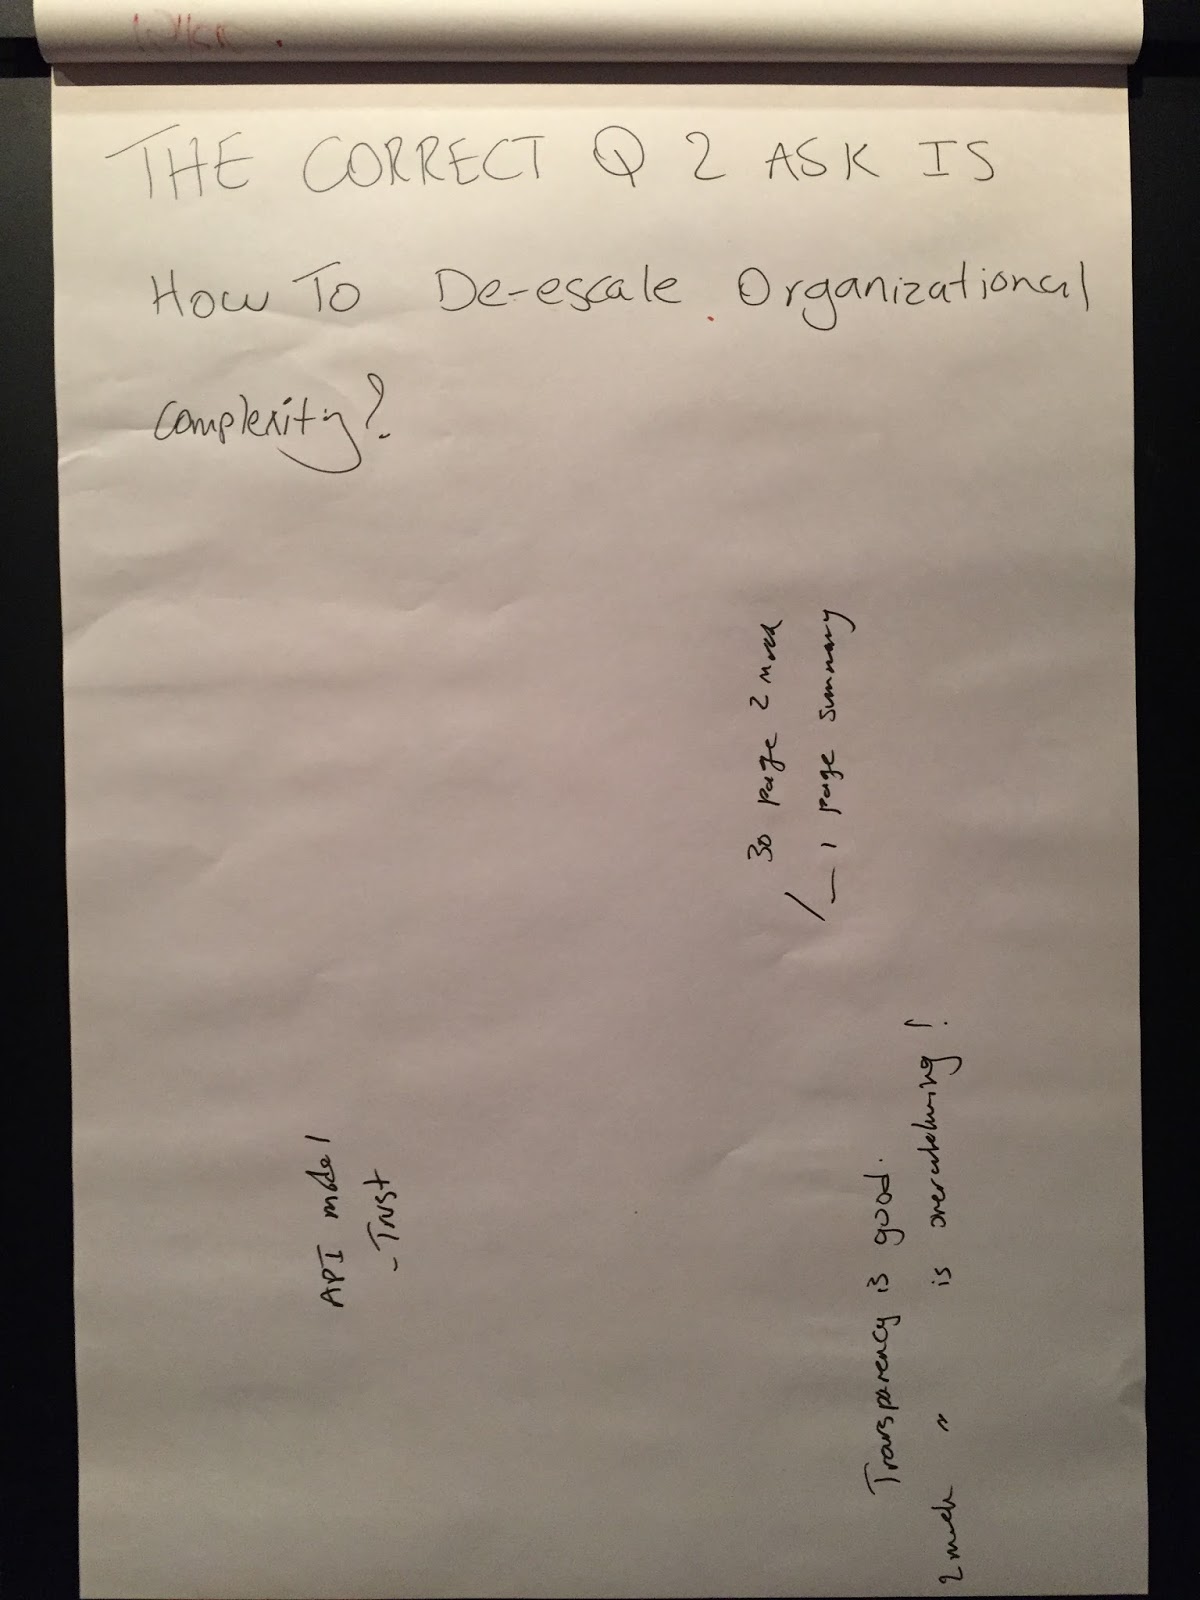 THE CORRECT Q 2 ASK IS
How To De-escale Organizational
complexity?
30 page 2 much
1 page summary
API model
- Trust
Transparency is good.
2 much " is overwhelming!